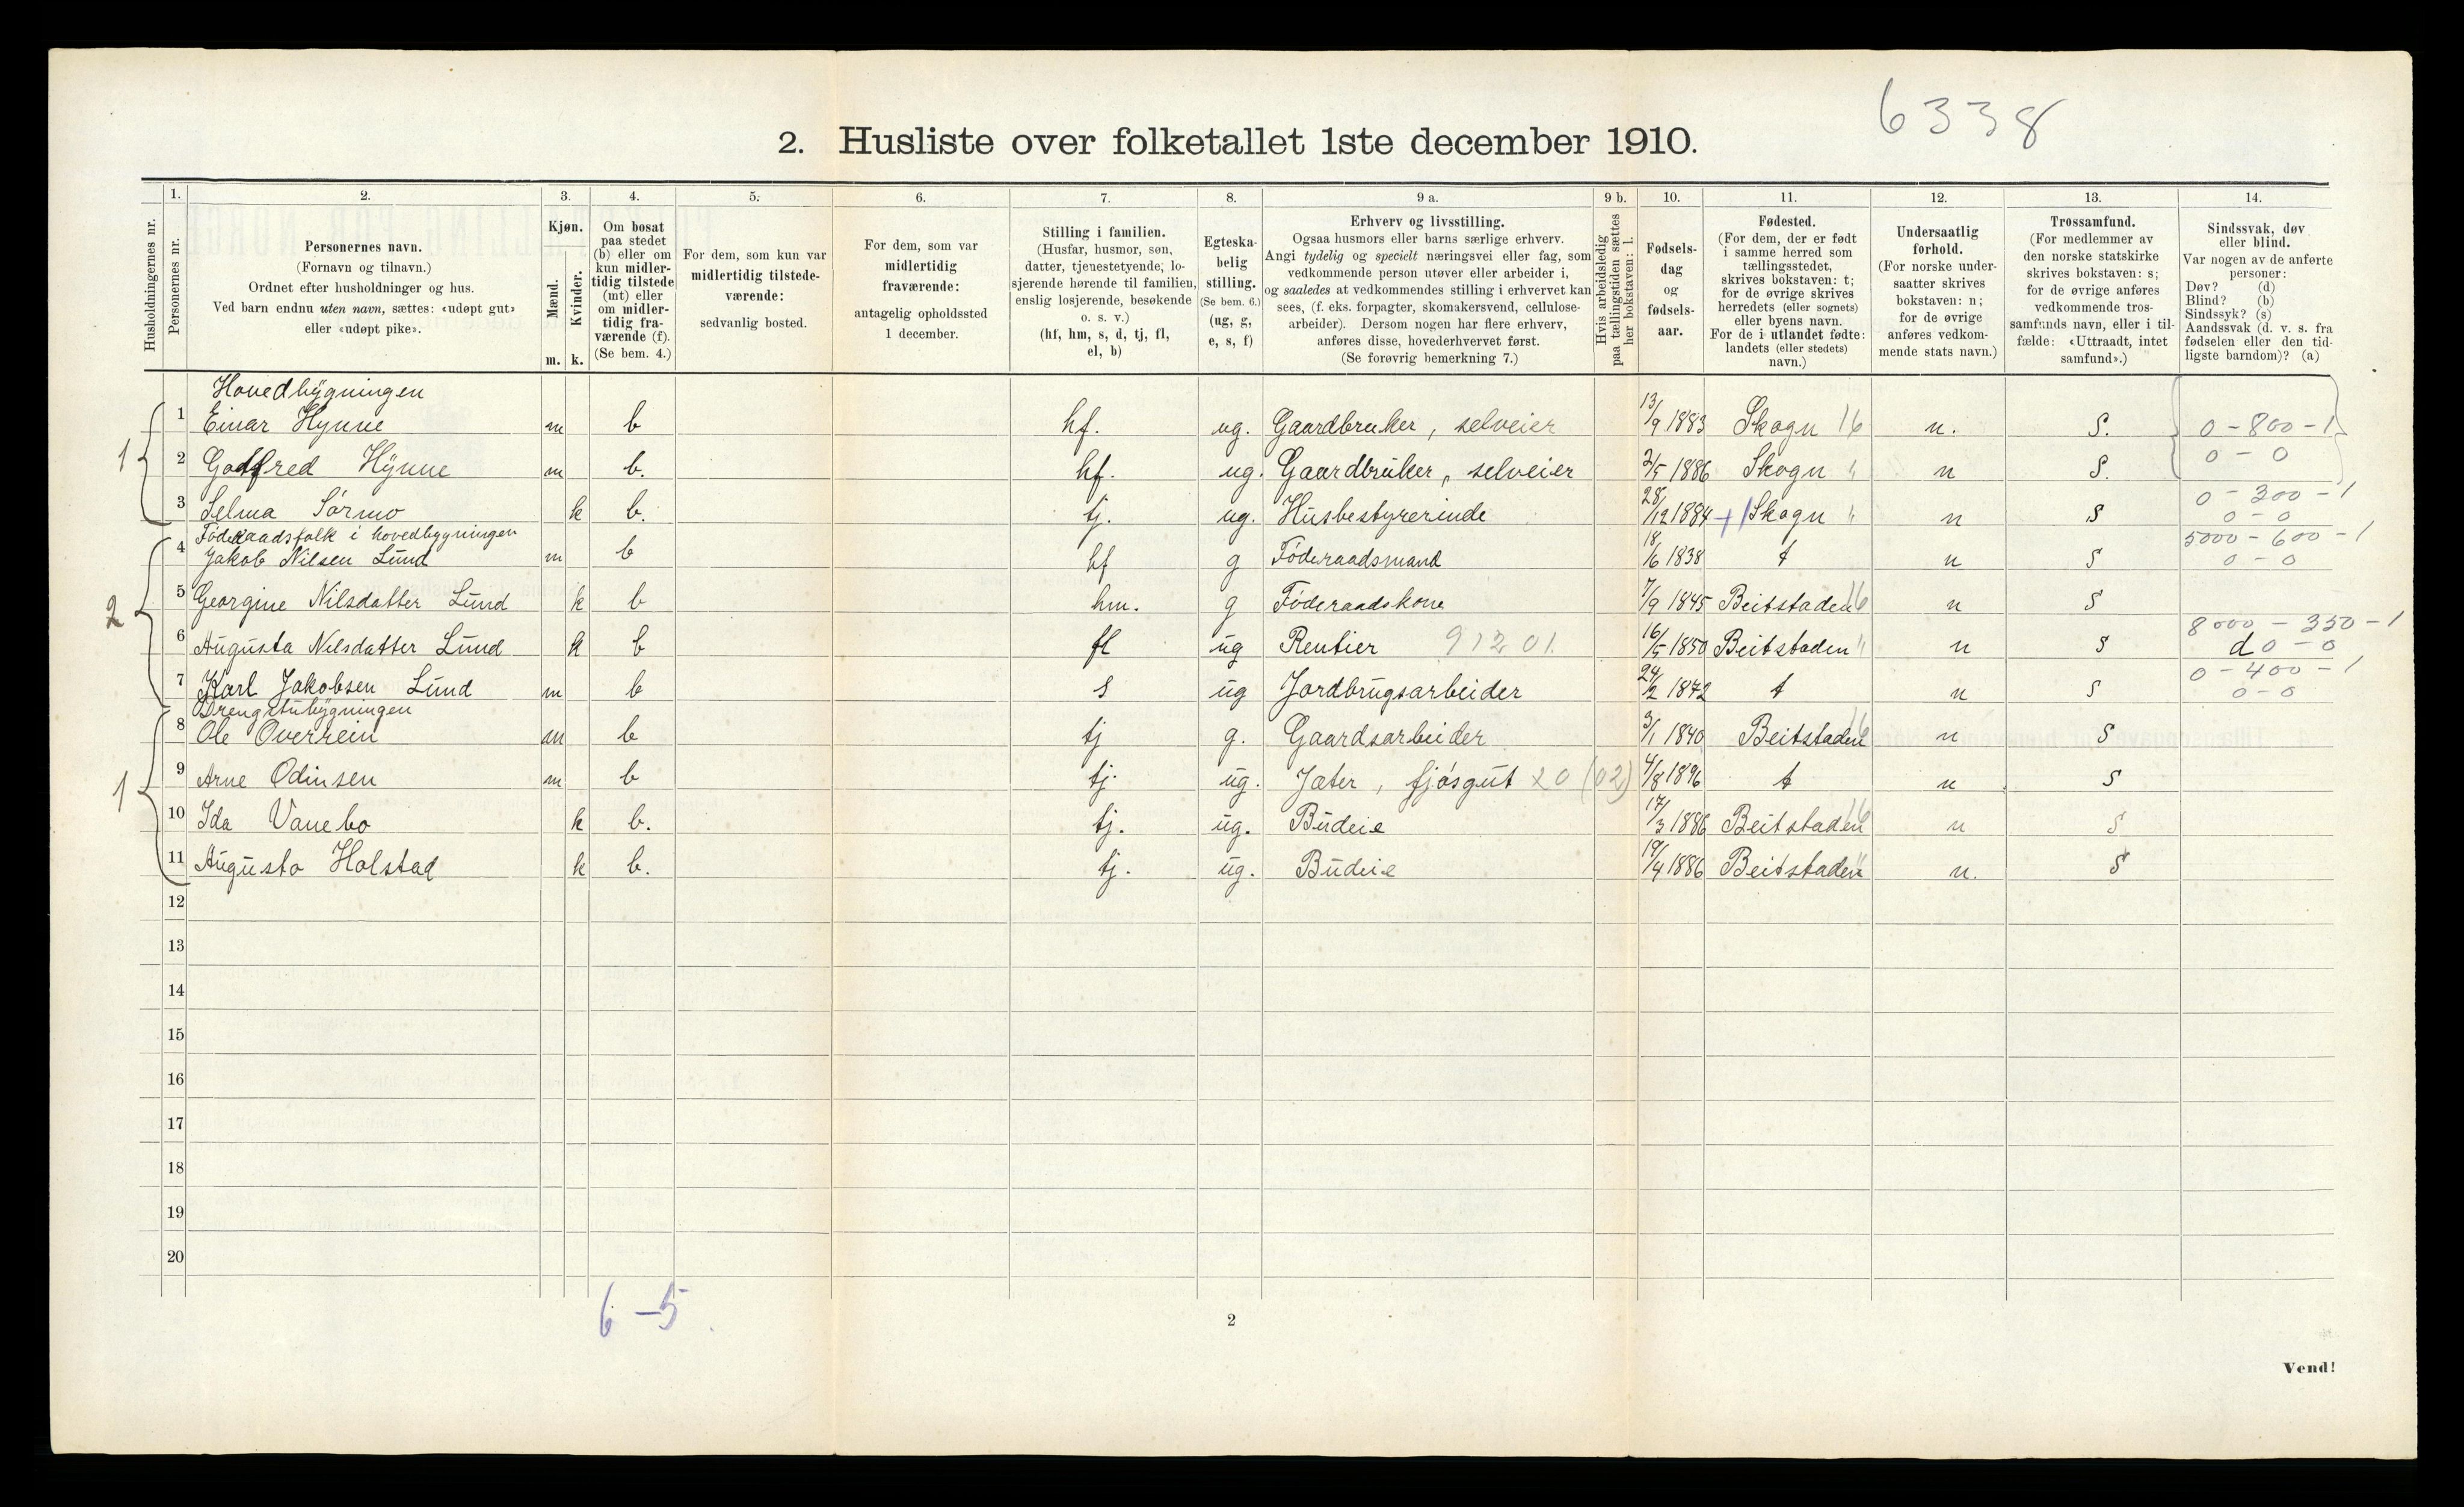 6338
2. Husliste over folketallet 1ste december 1910.
1. 2. 3. 4. 5. 6. 7. 8. 9 a. 9 b. 10. 11. 12. 13. 14.
Husholdningernes nr.
Personernes nr.
Personernes navn.
(Fornavn og tilnavn.)
Ordnet efter husholdninger og hus.
Ved barn endnu uten navn, sættes: «udøpt gut»
eller «udøpt pike».
Kjøn.
Mænd.
Kvinder.
m. k.
Om bosat
paa stedet
(b) eller om
kun midler-
tidig tilstede
(mt) eller
om midler-
tidig fra-
værende (f).
(Se bem. 4.)
For dem, som kun var
midlertidig tilstede-
værende:
sedvanlig bosted.
For dem, som var
midlertidig
fraværende:
antagelig opholdssted
1 december.
Stilling i familien.
(Husfar, husmor, søn,
datter, tjenestetyende, lo-
sjerende hørende til familien,
enslig losjerende, besøkende
o. s. v.)
(hf, hm, s, d, tj, fl,
el, b)
Egteska-
belig
stilling.
(Se bem. 6.)
(ug, g,
e, s, f)
Erhverv og livsstilling.
Ogsaa husmors eller barns særlige erhverv.
Angi tydelig og specielt næringsvei eller fag, som
vedkommende person utøver eller arbeider i,
og saaledes at vedkommendes stilling i erhvervet kan
sees, (f. eks. forpagter, skomakersvend, cellulose-
arbeider). Dersom nogen har flere erhverv,
anføres disse, hovederhvervet først.
(Se forøvrig bemerkning 7.)
Hvis arbeidsledig
paa tællingstiden sættes
her bokstaven: l.
Fødsels-
dag
og
fødsels-
aar.
Fødested.
(For dem, der er født
i samme herred som
tællingsstedet,
skrives bokstaven: t;
for de øvrige skrives
herredets (eller sognets)
eller byens navn.
For de i utlandet fødte:
landets (eller stedets)
navn.)
Undersaatlig
forhold.
(For norske under-
saatter skrives
bokstaven: n;
for de øvrige
anføres vedkom-
mende stats navn.)
Trossamfund.
(For medlemmer av
den norske statskirke
skrives bokstaven: s;
for de øvrige anføres
vedkommende tros-
samfunds navn, eller i til-
fælde: «Uttraadt, intet
samfund».)
Sindssvak, døv
eller blind.
Var nogen av de anførte
personer:
Døv? (d)
Blind? (b)
Sindssyk? (s)
Aandssvak (d. v. s. fra
fødselen eller den tid-
ligste barndom)? (a)
Hovedbygningen
1 1 Einar Hynne m b hf. ug. Gaardbruker, selveier 13/9 1883 Skogn 16 n. S. 0-800-1
0-0
2 Godtfred Hynne m b. hf. ug. Gaardbruker, selveier 2/5 1886 Skogn " n S.
0-300-1
3 Selma Sørmo k b. tj. ug. Husbestyrerinde 28/12 1884 + Skogn " n S 0-0
Føderaadsfolk i hovedbygningen 5000-600-1
2 4 Jakob Nilsen Lund m b hf g Føderaadsmand 18/6 1838 t n S 0-0
5 Georgine Nilsdatter Lund k b hm. g Føderaadskone 7/9 1845 Beitstaden 16 n S
8000-350-1
6 Augusta Nilsdatter Lund k b fl ug Rentier 912 01. 16/5 1850 Beitstaden " n S d 0-0
0-400-1
7 Karl Jakobsen Lund m b s ug Jordbrugsarbeider 24/2 1872 t n S 0-0
Drengstubygningen
1 8 Ole Overrein m b tj g. Gaardsarbeider 3/1 1840 Beitstaden 16 n S
9 Arne Odinsen m b tj. ug. Jæter, fjøsgut 20 (02) 4/8 1896 t n S
10 Ida Vanebo k b. tj. ug. Budeie 17/3 1886 Beitstaden 16 n S
11 Augusta Holstad k b. tj. ug. Budeie 19/4 1886 Beitstaden " n. S
12
13
14
15
16
17
18
19
20
6-5
2
Vend!